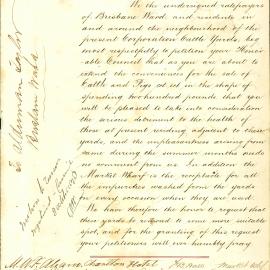 We the undersigned ratepayers
of Brisbane Ward and residents in
and around the neighbourhood of the
present Corporation Cattle Yards, beg
most respectfully to petition your Honor-
able Council that as you are about to
extend the conveniences for the sale of
Cattle and Pigs in the shape of
spending two hundred pounds that you
will be pleased to take into consideration
the serious detriment to the health of
those at present residing adjacent to these
yards, and the unpleasantness arising from
same during the summer months needs
no comment from us. In addition the
Market Wharf is the receptacle for all
the impurities washed from the yards
on every occasion when they are used.
We have therefore the honor to request that
these yards be removed to some more suitable
spot, and for the granting of this request
your petitioners will ever humbly pray
To Alderman Taylor
Brisbane Ward
Charlton Hotel